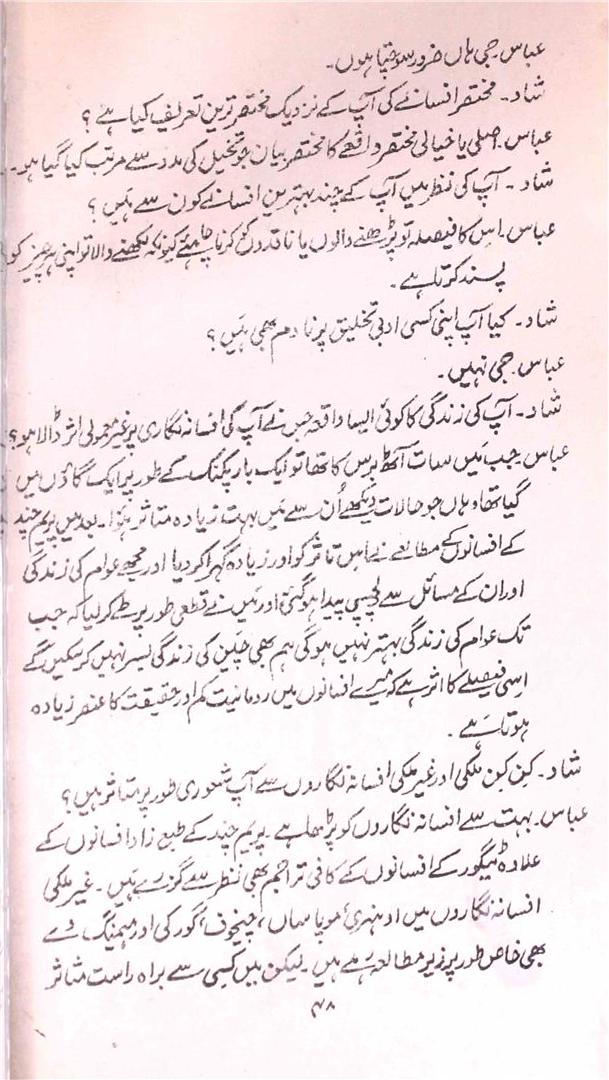 عباس۔ جی ہاں ضرور سوچتا ہوں۔
شاد۔ مختصر افسانے کی آپ کے نزدیک مختصر ترین تعریف کیا ہے؟
عباس۔ اصلی یا خیالی مختصر واقعے کا مختصر بیان جو تخیل کی مدد سے مرتب کیا گیا ہو۔
شاد۔ آپ کی نظر میں آپ کے چند بہترین افسانے کون سے ہیں؟
عباس۔ اس کا فیصلہ تو پڑھنے والوں یا ناقدوں کو کرنا چاہئے کیونکہ لکھنے والا تو اپنی ہر چیز کو
پسند کرتا ہے۔
شاد۔ کیا آپ اپنی کسی ادبی تخلیق پر نادم بھی ہیں؟
عباس۔ جی نہیں۔
شاد۔ آپ کی زندگی کا کوئی ایسا واقعہ جس نے آپ کی افسانہ نگاری پر غیر معمولی اثر ڈالا ہو؟
عباس۔ جب میں سات آٹھ برس کا تھا تو ایک بار پکنک کے طور پر ایک گاؤں میں
گیا تھا وہاں جو حالات دیکھے اُن سے میں بہت زیادہ متاثر ہوا۔ بعد میں پریم چند
کے افسانوں کے مطالعے نے اس تاثر کو اور زیادہ گہرا کر دیا اور مجھے عوام کی زندگی
اور ان کے مسائل سے دلچسپی پیدا ہو گئی اور میں نے قطعی طور پر طے کر لیا کہ جب
تک عوام کی زندگی بہتر نہیں ہو گی ہم بھی چین کی زندگی بسر نہیں کر سکیں گے
اسی فیصلے کا اثر ہے کہ میرے افسانوں میں رومانیت کم اور حقیقت کا عنصر زیادہ
ہوتا ہے۔
شاد۔ کِن کِن ملکی اور غیر ملکی افسانہ نگاروں سے آپ شعوری طور پر متاثر ہیں؟
عباس۔ بہت سے افسانہ نگاروں کو پڑھا ہے۔ پریم چند کے طبع زاد افسانوں کے
علاوہ ٹیگور کے افسانوں کے کافی تراجم بھی نظر سے گزرے ہیں۔ غیر ملکی
افسانہ نگاروں میں او ہنری، موپاساں، چیخوف، گورکی اور ہیمنگ وے
بھی خاص طور پر زیرِ مطالعہ رہے ہیں۔ لیکن میں کسی سے براہ راست متاثر
۴۸